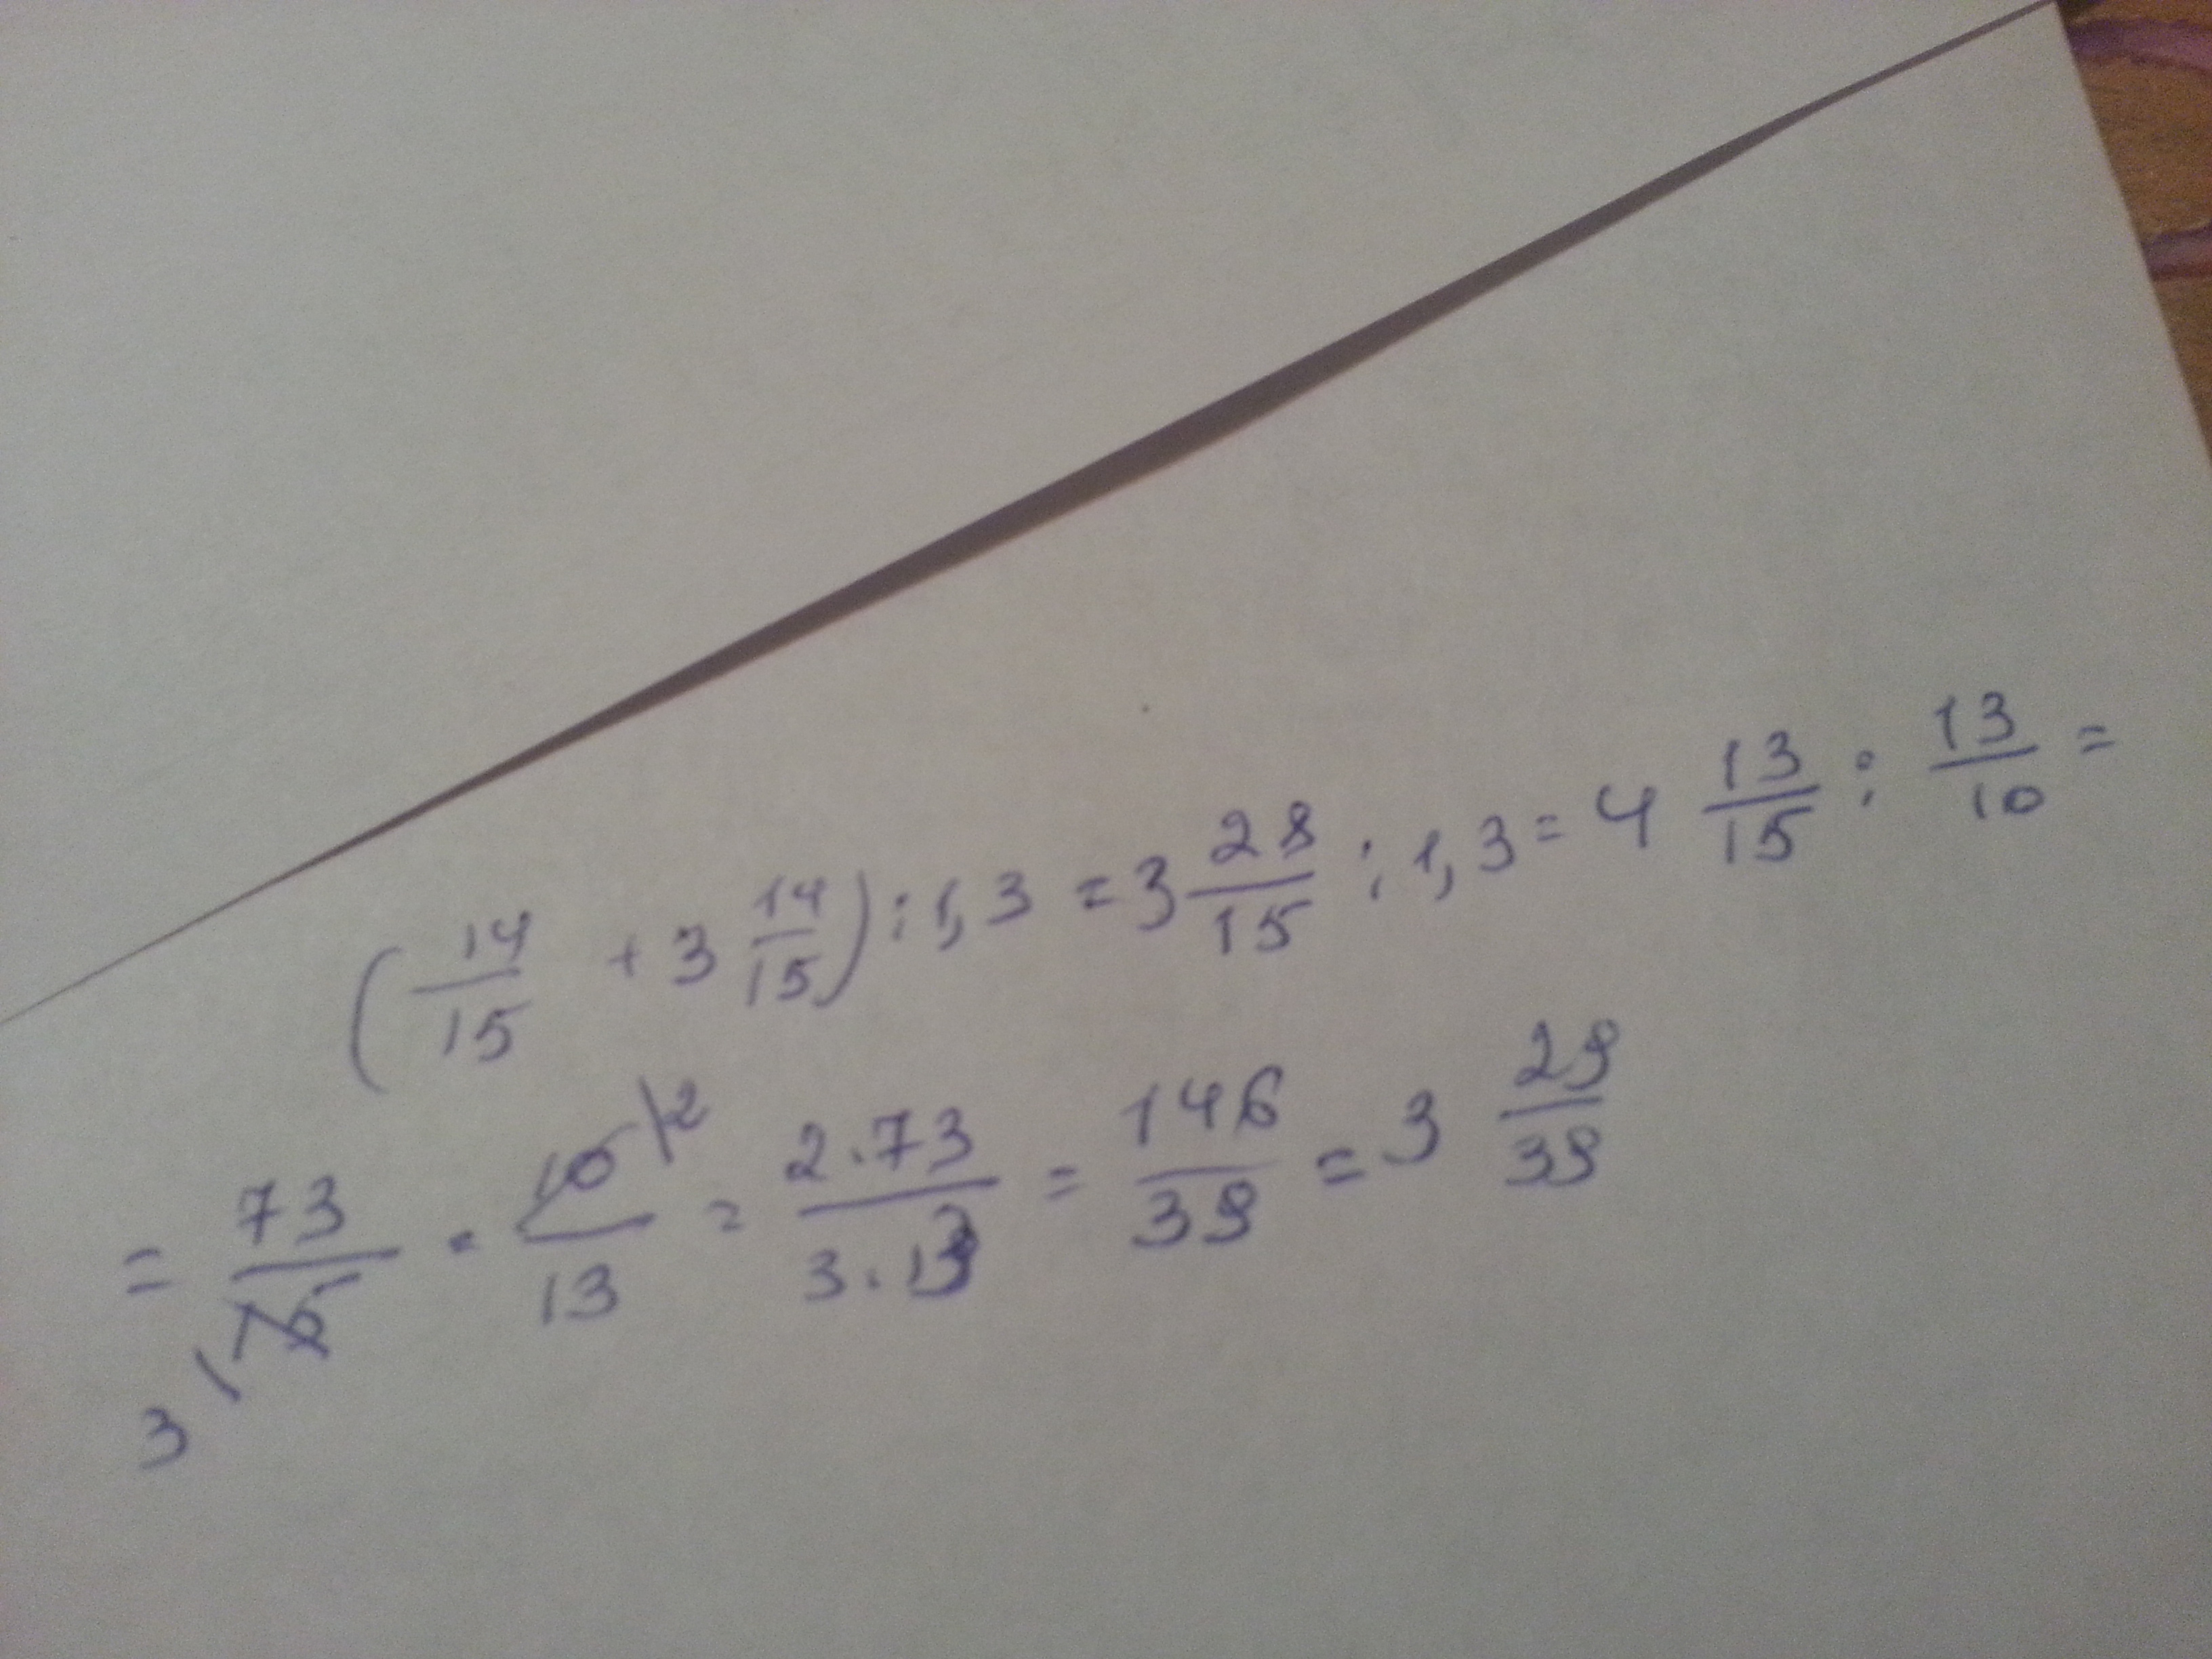 (14/15 + 3 14/15) : 1,3 = 3 28/15 : 1,3 = 4 13/15 : 13/10 =
= 73/15 · 10/13 = 2·73/3·13 = 146/39 = 3 29/39
3 2